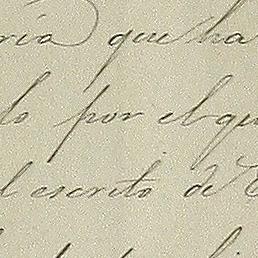 ria que ha
lo por el que
l escrito de